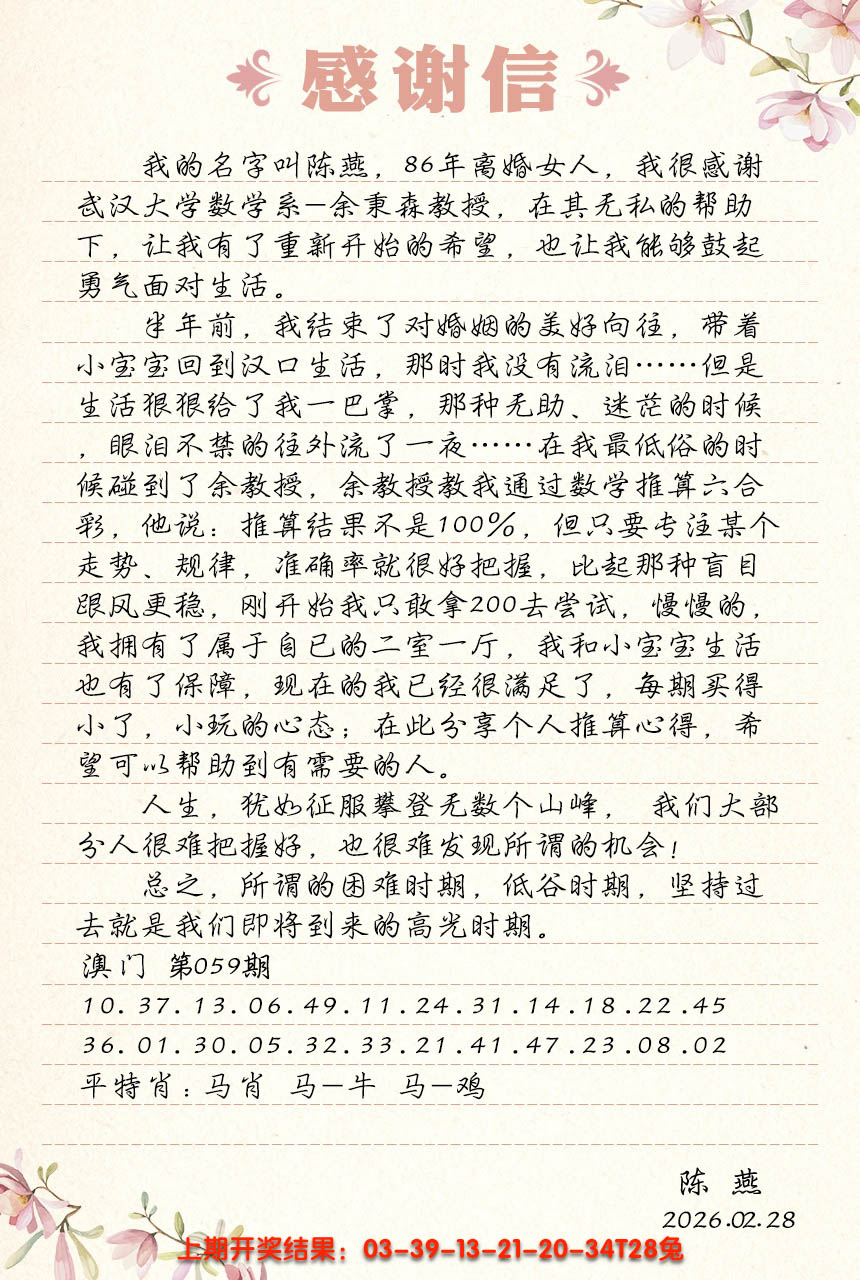 感谢信
我的名字叫陈燕，86年离婚女人，我很感谢
武汉大学数学系—余秉森教授，在其无私的帮助
下，让我有了重新开始的希望，也让我能够鼓起
勇气面对生活。
半年前，我结束了对婚姻的美好向往，带着
小宝宝回到汉口生活，那时我没有流泪……但是
生活狠狠给了我一巴掌，那种无助、迷茫的时候
，眼泪不禁的往外流了一夜……在我最低俗的时
候碰到了余教授，余教授教我通过数学推算六合
彩，他说：推算结果不是100%，但只要专注某个
走势、规律，准确率就很好把握，比起那种盲目
跟风更稳，刚开始我只敢拿200去尝试，慢慢的，
我拥有了属于自已的二室一厅，我和小宝宝生活
也有了保障，现在的我已经很满足了，每期买得
小了，小玩的心态；在此分享个人推算心得，希
望可以帮助到有需要的人。
人生，犹如征服攀登无数个山峰， 我们大部
分人很难把握好，也很难发现所谓的机会！
总之，所谓的困难时期，低谷时期，坚持过
去就是我们即将到来的高光时期。
澳门 第059期
10.37.13.06.49.11.24.31.14.18.22.45
36.01.30.05.32.33.21.41.47.23.08.02
平特肖：马肖 马—牛 马—鸡
陈 燕
2026.02.28
上期开奖结果：03-39-13-21-20-34T28兔